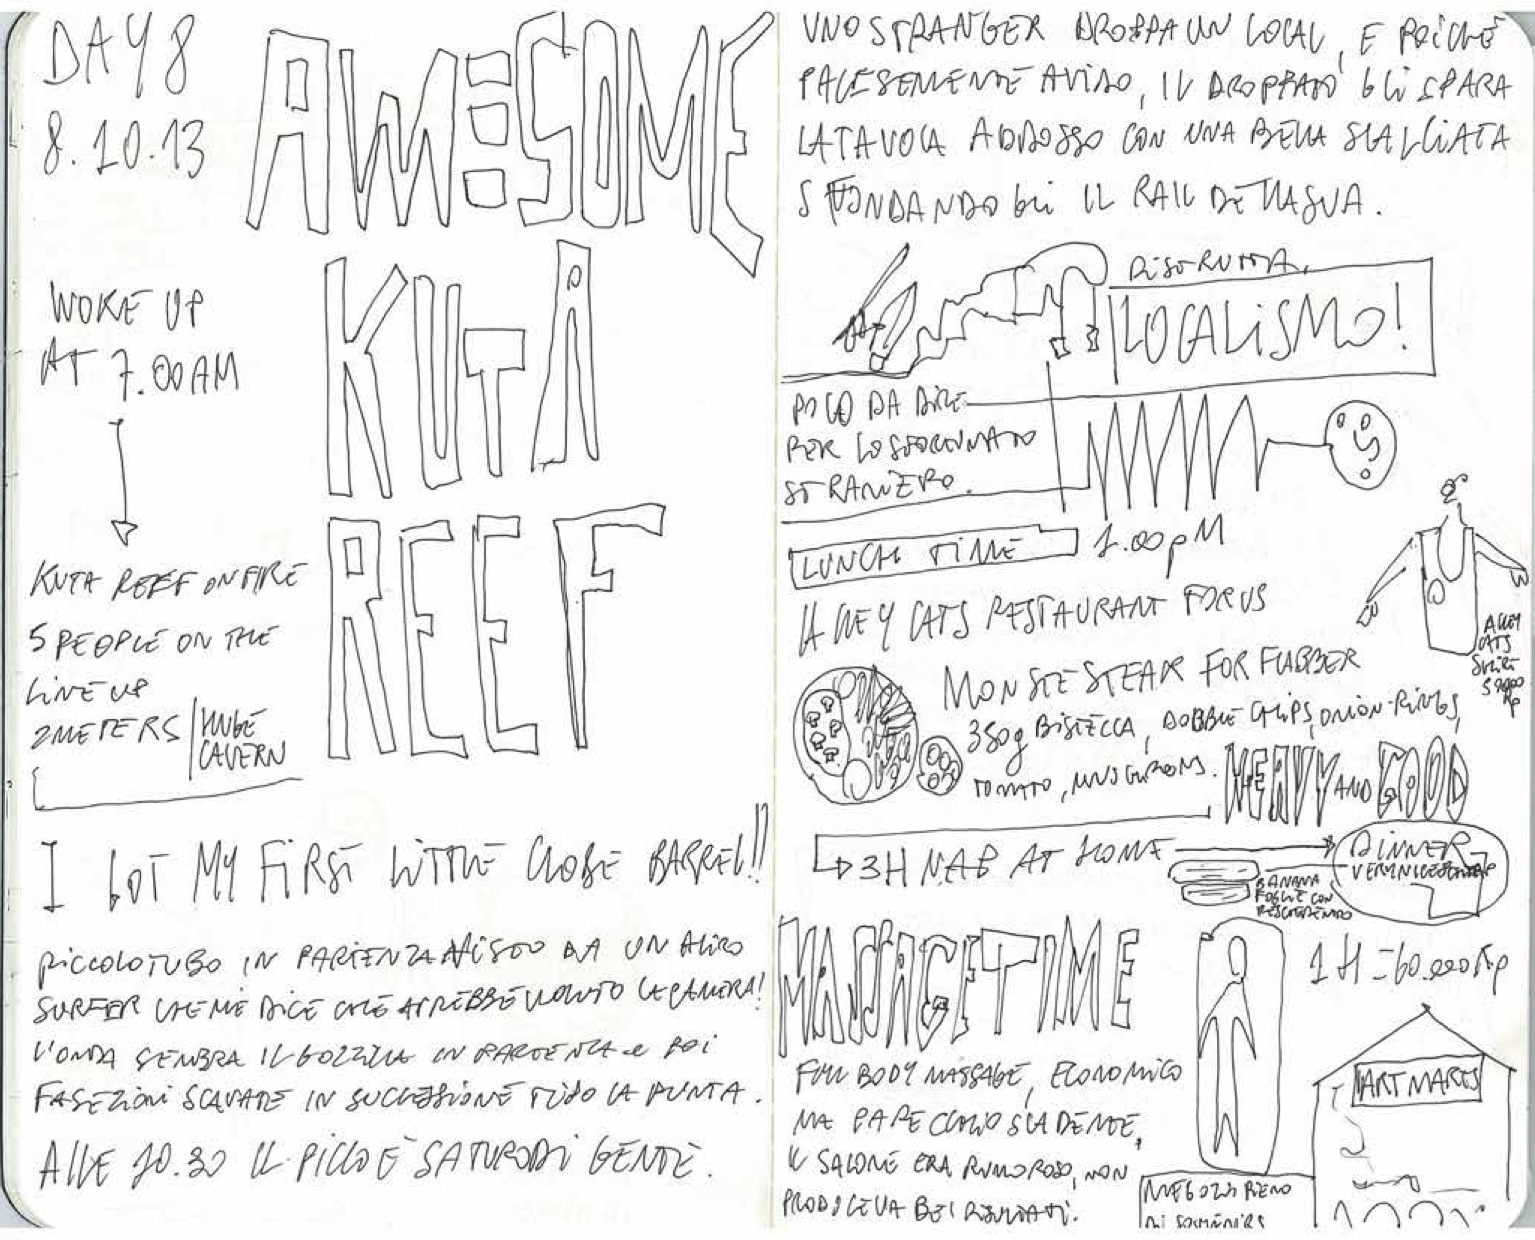 DAY 8
8.10.13
AWESOME
KUTA
REEF
WOKE UP
AT 7.00 AM
KUTA REEF ON FIRE
5 PEOPLE ON THE
LINE UP
2 METERS / HUGE
CAVERN
I GOT MY FIRST LITTLE CLOSE BARREL!!
PICCOLO TUBO IN PARTENZA VISTO DA UN ALTRO
SURFER CHE ME DICE CHE AVREBBE VOLUTO LA CAMERA!
L'ONDA SEMBRA IL GOZZILLA IN PARTENZA E POI
3 SEZIONI SCAVATE IN SUCCESSIONE TIPO LA PUNTA.
ALLE 10.30 IL PICCO È SATURO DI GENTE.
UNO STRANGER DROPPA UN LOCAL, E POICHÈ
PALESEMENTE AVIDO, IL DROPPATO GLI SPARA
LA TAVOLA ADDOSSO CON UNA BELLA SCALCIATA
SFONDANDOGLI IL RAIL DELLA SUA.
DISTRUTTA.
LOCALISMO!
POCO DA DIRE
PER LO SFORTUNATO
STRANIERO.
LUNCH TIME 1.00 PM
ALLEY CATS RESTAURANT FOR US
MONSTE STEAK FOR FLABBER
350g BISTECCA, DOBBLE CHIPS, ONION-RINGS,
TOMATO, MUSHROOMS. HEAVY AND GOOD
ALLEY
CATS
3H NAB AT HOME
DINNER
BANANA
FOGLIE CON
MASSAGE TIME
1 H = 60.000 Rp
FULL BODY MASSAGE, ECONOMICO
MA PARECCHIO SCADENTE,
IL SALONE ERA RUMOROSO, NON
PRODUCEVA BEI RISULTATI.
ART MARTS
NEGOZI PIENO
DI SOUVENIRS